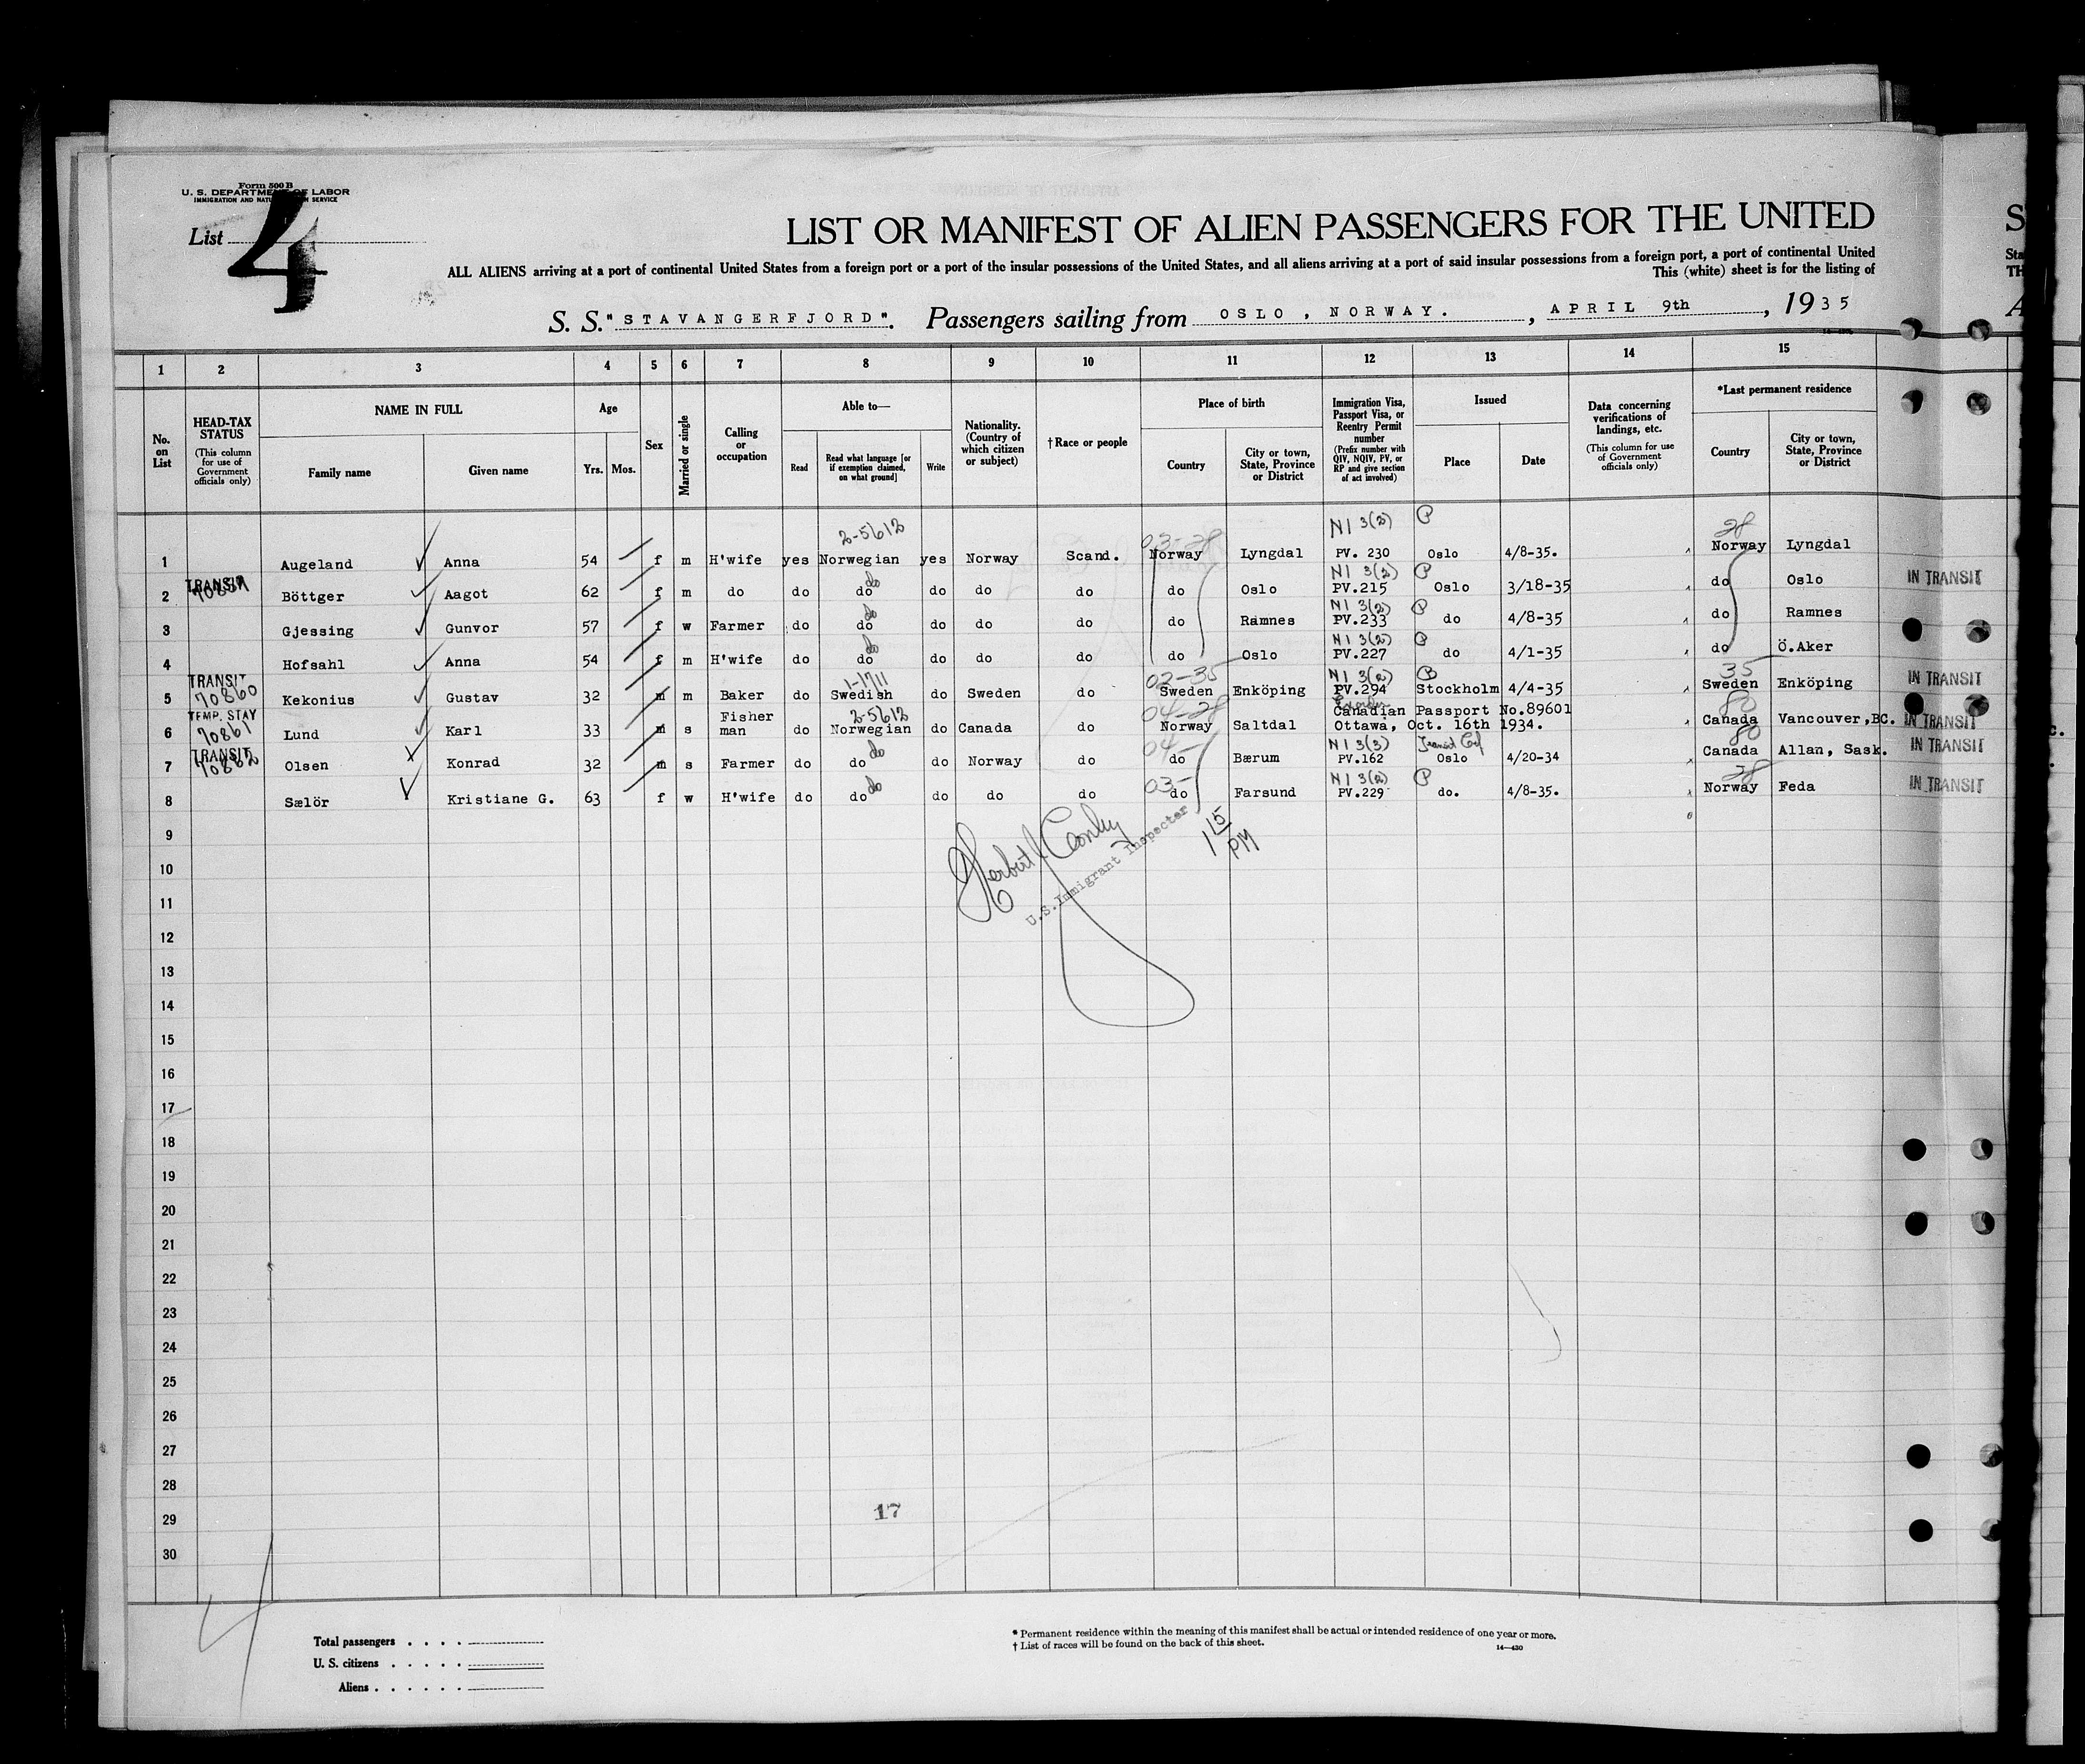 Form 500 B
U. S. DEPARTMENT OF LABOR
IMMIGRATION AND NATURALIZATION SERVICE
List 4
LIST OR MANIFEST OF ALIEN PASSENGERS FOR THE UNITED
ALL ALIENS arriving at a port of continental United States from a foreign port or a port of the insular possessions of the United States, and all aliens arriving at a port of said insular possessions from a foreign port, a port of continental United
This (white) sheet is for the listing of
S. S. "STAVANGERFJORD". Passengers sailing from OSLO, NORWAY. , APRIL 9th , 1935
1 2 3 4 5 6 7 8 9 10 11 12 13 14 15
No. on List
HEAD-TAX STATUS (This column for use of Government officials only)
NAME IN FULL
Family name
Given name
Age
Yrs.
Mos.
Sex
Married or single
Calling or occupation
Able to—
Read
Read what language [or if exemption claimed, on what ground]
Write
Nationality. (Country of which citizen or subject)
†Race or people
Place of birth
Country
City or town, State, Province or District
Immigration Visa, Passport Visa, or Reentry Permit number (Prefix number with QIV, NQIV, PV, or RP and give section of act involved)
Issued
Place
Date
Data concerning verifications of landings, etc. (This column for use of Government officials only)
*Last permanent residence
Country
City or town, State, Province or District
2-5612 03-28 NI 3(2) P 28
1 Augeland Anna 54 f m H'wife yes Norwegian yes Norway Scand. Norway Lyngdal PV. 230 Oslo 4/8-35. Norway Lyngdal
TRANSIT do NI 3(2) P
2 Böttger Aagot 62 f m do do do do do do do Oslo PV.215 Oslo 3/18-35 do Oslo IN TRANSIT
do NI 3(2) P
3 Gjessing Gunvor 57 f w Farmer do do do do do do Ramnes PV.233 do 4/8-35 do Ramnes
do NI 3(2) P
4 Hofsahl Anna 54 f m H'wife do do do do do do Oslo PV.227 do 4/1-35 do Ö.Aker
TRANSIT 70860 1-1711 02-35 NI 3(2) 35
5 Kekonius Gustav 32 m m Baker do Swedish do Sweden do Sweden Enköping PV.294 Stockholm 4/4-35 Sweden Enköping IN TRANSIT
TEMP. STAY 70861 2-5612 04-28 80
6 Lund Karl 33 m s Fisher man do Norwegian do Canada do Norway Saltdal Canadian Passport No.89601 Ottawa, Oct. 16th 1934. Canada Vancouver,BC. IN TRANSIT
TRANSIT 70862 do 04- NI 3(3) Transit Cert 80
7 Olsen Konrad 32 m s Farmer do do do Norway do do Bærum PV.162 Oslo 4/20-34 Canada Allan, Sask. IN TRANSIT
do 03- NI 3(2) P 28
8 Sælör Kristiane G. 63 f w H'wife do do do do do do Farsund PV.229 do. 4/8-35. Norway Feda IN TRANSIT
9
10
11
12
13
14
15
16
17
18
19
20
21
22
23
24
25
26
27
28
29
30
U.S. Immigrant Inspector
1 15 PM
17
Total passengers
U. S. citizens
Aliens
* Permanent residence within the meaning of this manifest shall be actual or intended residence of one year or more.
† List of races will be found on the back of this sheet.
14—430